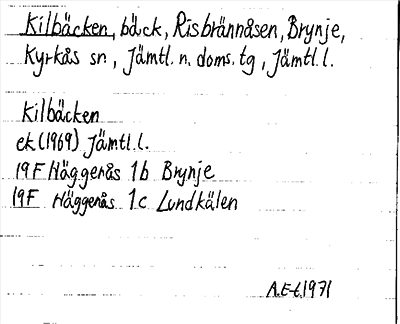 Kilbäcken, bäck, Risbrännåsen, Brynje,
Kyrkås sn, Jämtl. n. doms. tg, Jämtl. l.
Kilbäcken
ek (1969) Jämtl. l.
19F Häggenås 1b Brynje
19F Häggenås 1c Lundkälen
A.E-t 1971